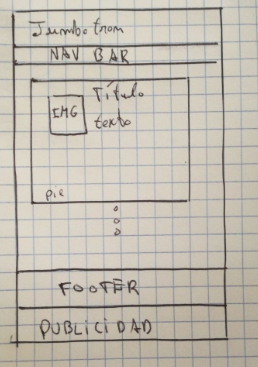 Jumbotrom
NAV BAR
Título
IMG
texto
pie
FOOTER
PUBLICIDAD